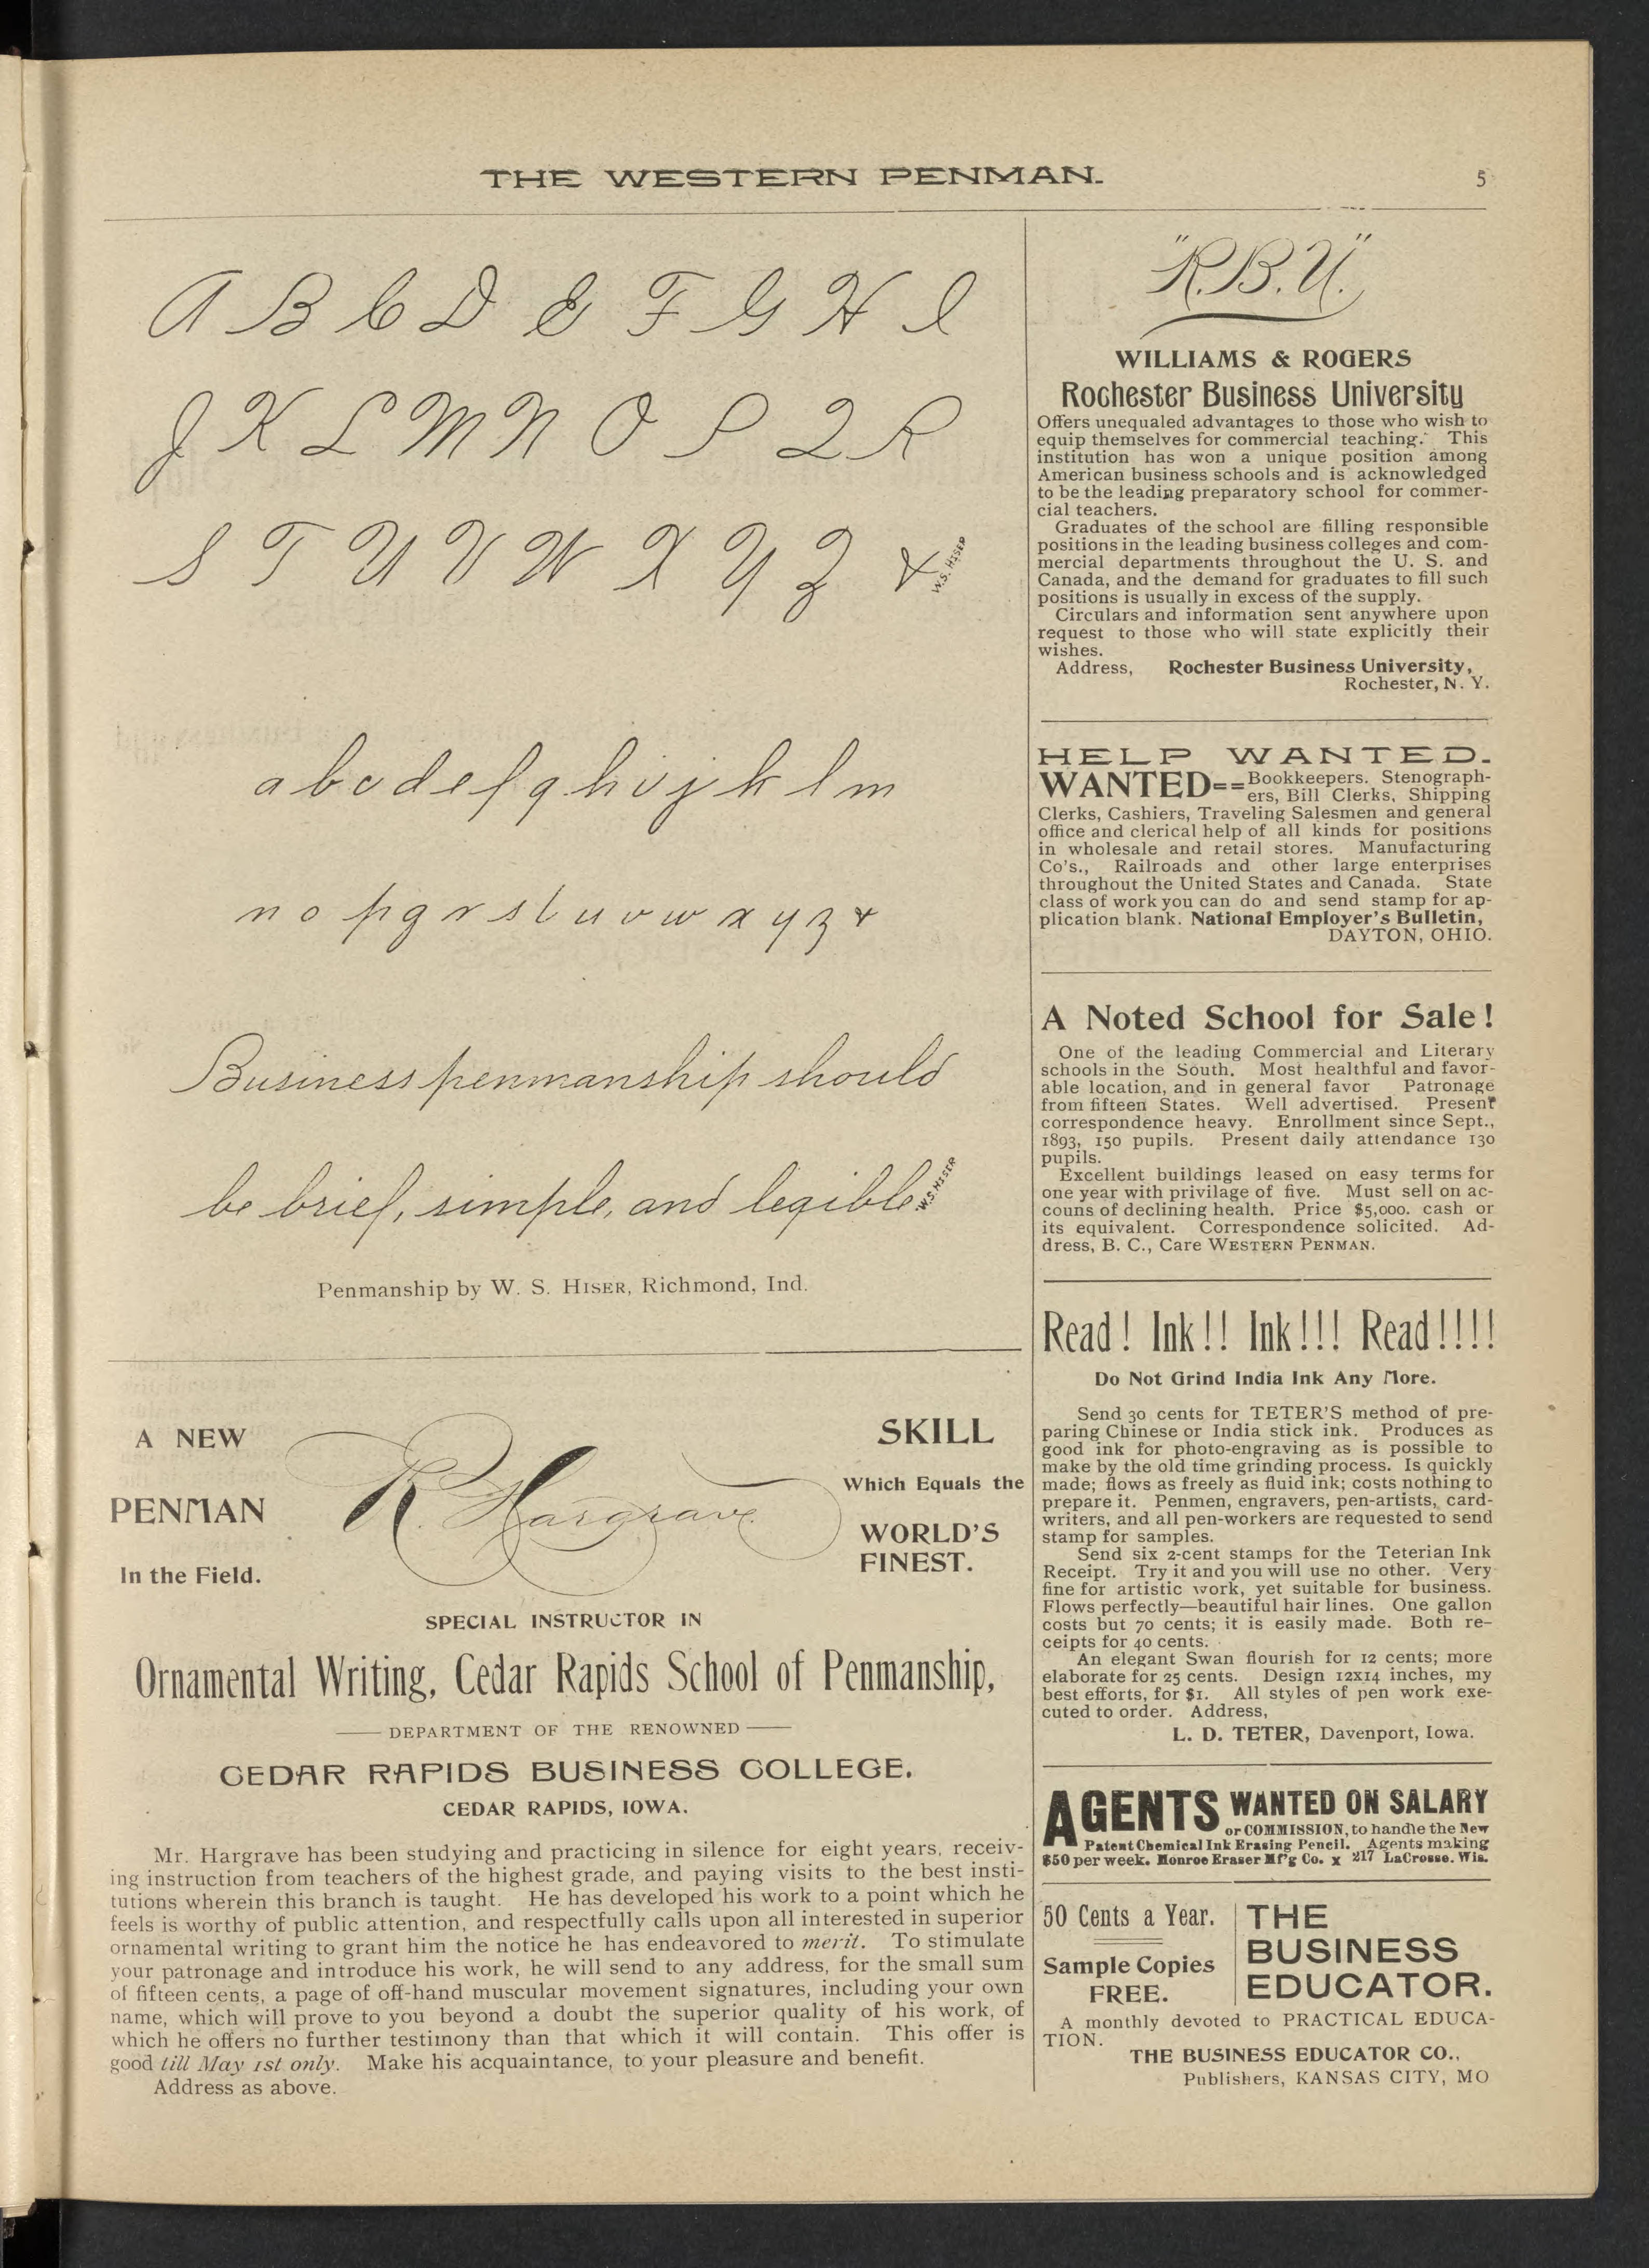 THE WESTERN PENMAN.
5
A B C D E F G H I
J K L M N O P Q R
S T U V W X Y Z &
W.S. HISER
a b c d e f g h i j k l m
n o p q r s t u v w x y z &
Business penmanship should
be brief, simple, and legible.
W.S. HISER
Penmanship by W. S. HISER, Richmond, Ind.
A NEW
PENMAN
In the Field.
R. Hargrave
SKILL
Which Equals the
WORLD'S
FINEST.
SPECIAL INSTRUCTOR IN
Ornamental Writing, Cedar Rapids School of Penmanship,
DEPARTMENT OF THE RENOWNED
CEDAR RAPIDS BUSINESS COLLEGE.
CEDAR RAPIDS, IOWA.
Mr. Hargrave has been studying and practicing in silence for eight years, receiv-
ing instruction from teachers of the highest grade, and paying visits to the best insti-
tutions wherein this branch is taught. He has developed his work to a point which he
feels is worthy of public attention, and respectfully calls upon all interested in superior
ornamental writing to grant him the notice he has endeavored to merit. To stimulate
your patronage and introduce his work, he will send to any address, for the small sum
of fifteen cents, a page of off-hand muscular movement signatures, including your own
name, which will prove to you beyond a doubt the superior quality of his work, of
which he offers no further testimony than that which it will contain. This offer is
good till May 1st only. Make his acquaintance, to your pleasure and benefit.
Address as above.
"R.B.U."
WILLIAMS & ROGERS
Rochester Business University
Offers unequaled advantages to those who wish to
equip themselves for commercial teaching. This
institution has won a unique position among
American business schools and is acknowledged
to be the leading preparatory school for commer-
cial teachers.
Graduates of the school are filling responsible
positions in the leading business colleges and com-
mercial departments throughout the U. S. and
Canada, and the demand for graduates to fill such
positions is usually in excess of the supply.
Circulars and information sent anywhere upon
request to those who will state explicitly their
wishes.
Address, Rochester Business University,
Rochester, N. Y.
HELP WANTED.
WANTED==Bookkeepers. Stenograph-
ers, Bill Clerks, Shipping
Clerks, Cashiers, Traveling Salesmen and general
office and clerical help of all kinds for positions
in wholesale and retail stores. Manufacturing
Co's., Railroads and other large enterprises
throughout the United States and Canada. State
class of work you can do and send stamp for ap-
plication blank. National Employer's Bulletin,
DAYTON, OHIO.
A Noted School for Sale!
One of the leading Commercial and Literary
schools in the South. Most healthful and favor-
able location, and in general favor Patronage
from fifteen States. Well advertised. Present
correspondence heavy. Enrollment since Sept.,
1893, 150 pupils. Present daily attendance 130
pupils.
Excellent buildings leased on easy terms for
one year with privilage of five. Must sell on ac-
couns of declining health. Price $5,000. cash or
its equivalent. Correspondence solicited. Ad-
dress, B. C., Care WESTERN PENMAN.
Read! Ink!! Ink!!! Read!!!!
Do Not Grind India Ink Any More.
Send 30 cents for TETER'S method of pre-
paring Chinese or India stick ink. Produces as
good ink for photo-engraving as is possible to
make by the old time grinding process. Is quickly
made; flows as freely as fluid ink; costs nothing to
prepare it. Penmen, engravers, pen-artists, card-
writers, and all pen-workers are requested to send
stamp for samples.
Send six 2-cent stamps for the Teterian Ink
Receipt. Try it and you will use no other. Very
fine for artistic work, yet suitable for business.
Flows perfectly—beautiful hair lines. One gallon
costs but 70 cents; it is easily made. Both re-
ceipts for 40 cents.
An elegant Swan flourish for 12 cents; more
elaborate for 25 cents. Design 12x14 inches, my
best efforts, for $1. All styles of pen work exe-
cuted to order. Address,
L. D. TETER, Davenport, Iowa.
AGENTS WANTED ON SALARY
or COMMISSION, to handle the New
Patent Chemical Ink Erasing Pencil. Agents making
$50 per week. Monroe Eraser Mf'g Co. x 217 LaCrosse. Wis.
50 Cents a Year.
Sample Copies
FREE.
THE
BUSINESS
EDUCATOR.
A monthly devoted to PRACTICAL EDUCA-
TION.
THE BUSINESS EDUCATOR CO.,
Publishers, KANSAS CITY, MO